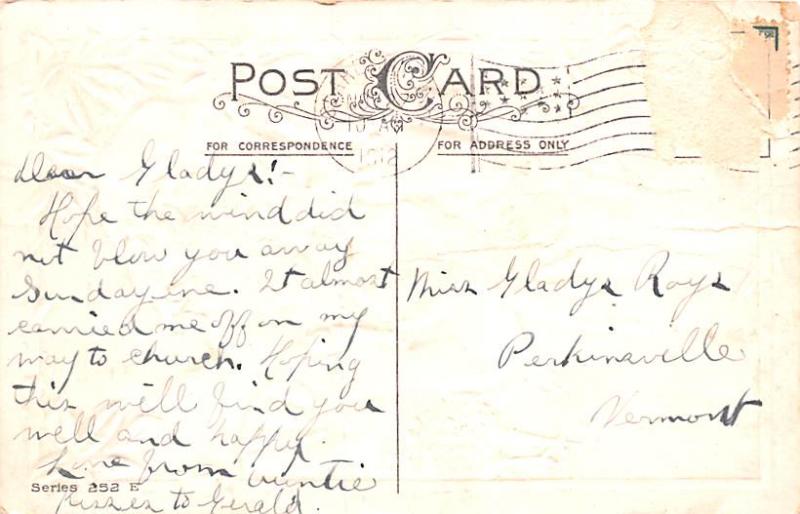 POST CARD
10 AM
1912
FOR CORRESPONDENCE
FOR ADDRESS ONLY
Dear Gladys!-
Hope the wind did
not blow you away
Sunday eve. It almost
carried me off on my
way to church. Hoping
this will find you
well and happy.
Love from Auntie
Kisses to Gerald.
Miss Gladys Roys
Perkinsville
Vermont
Series 252 E